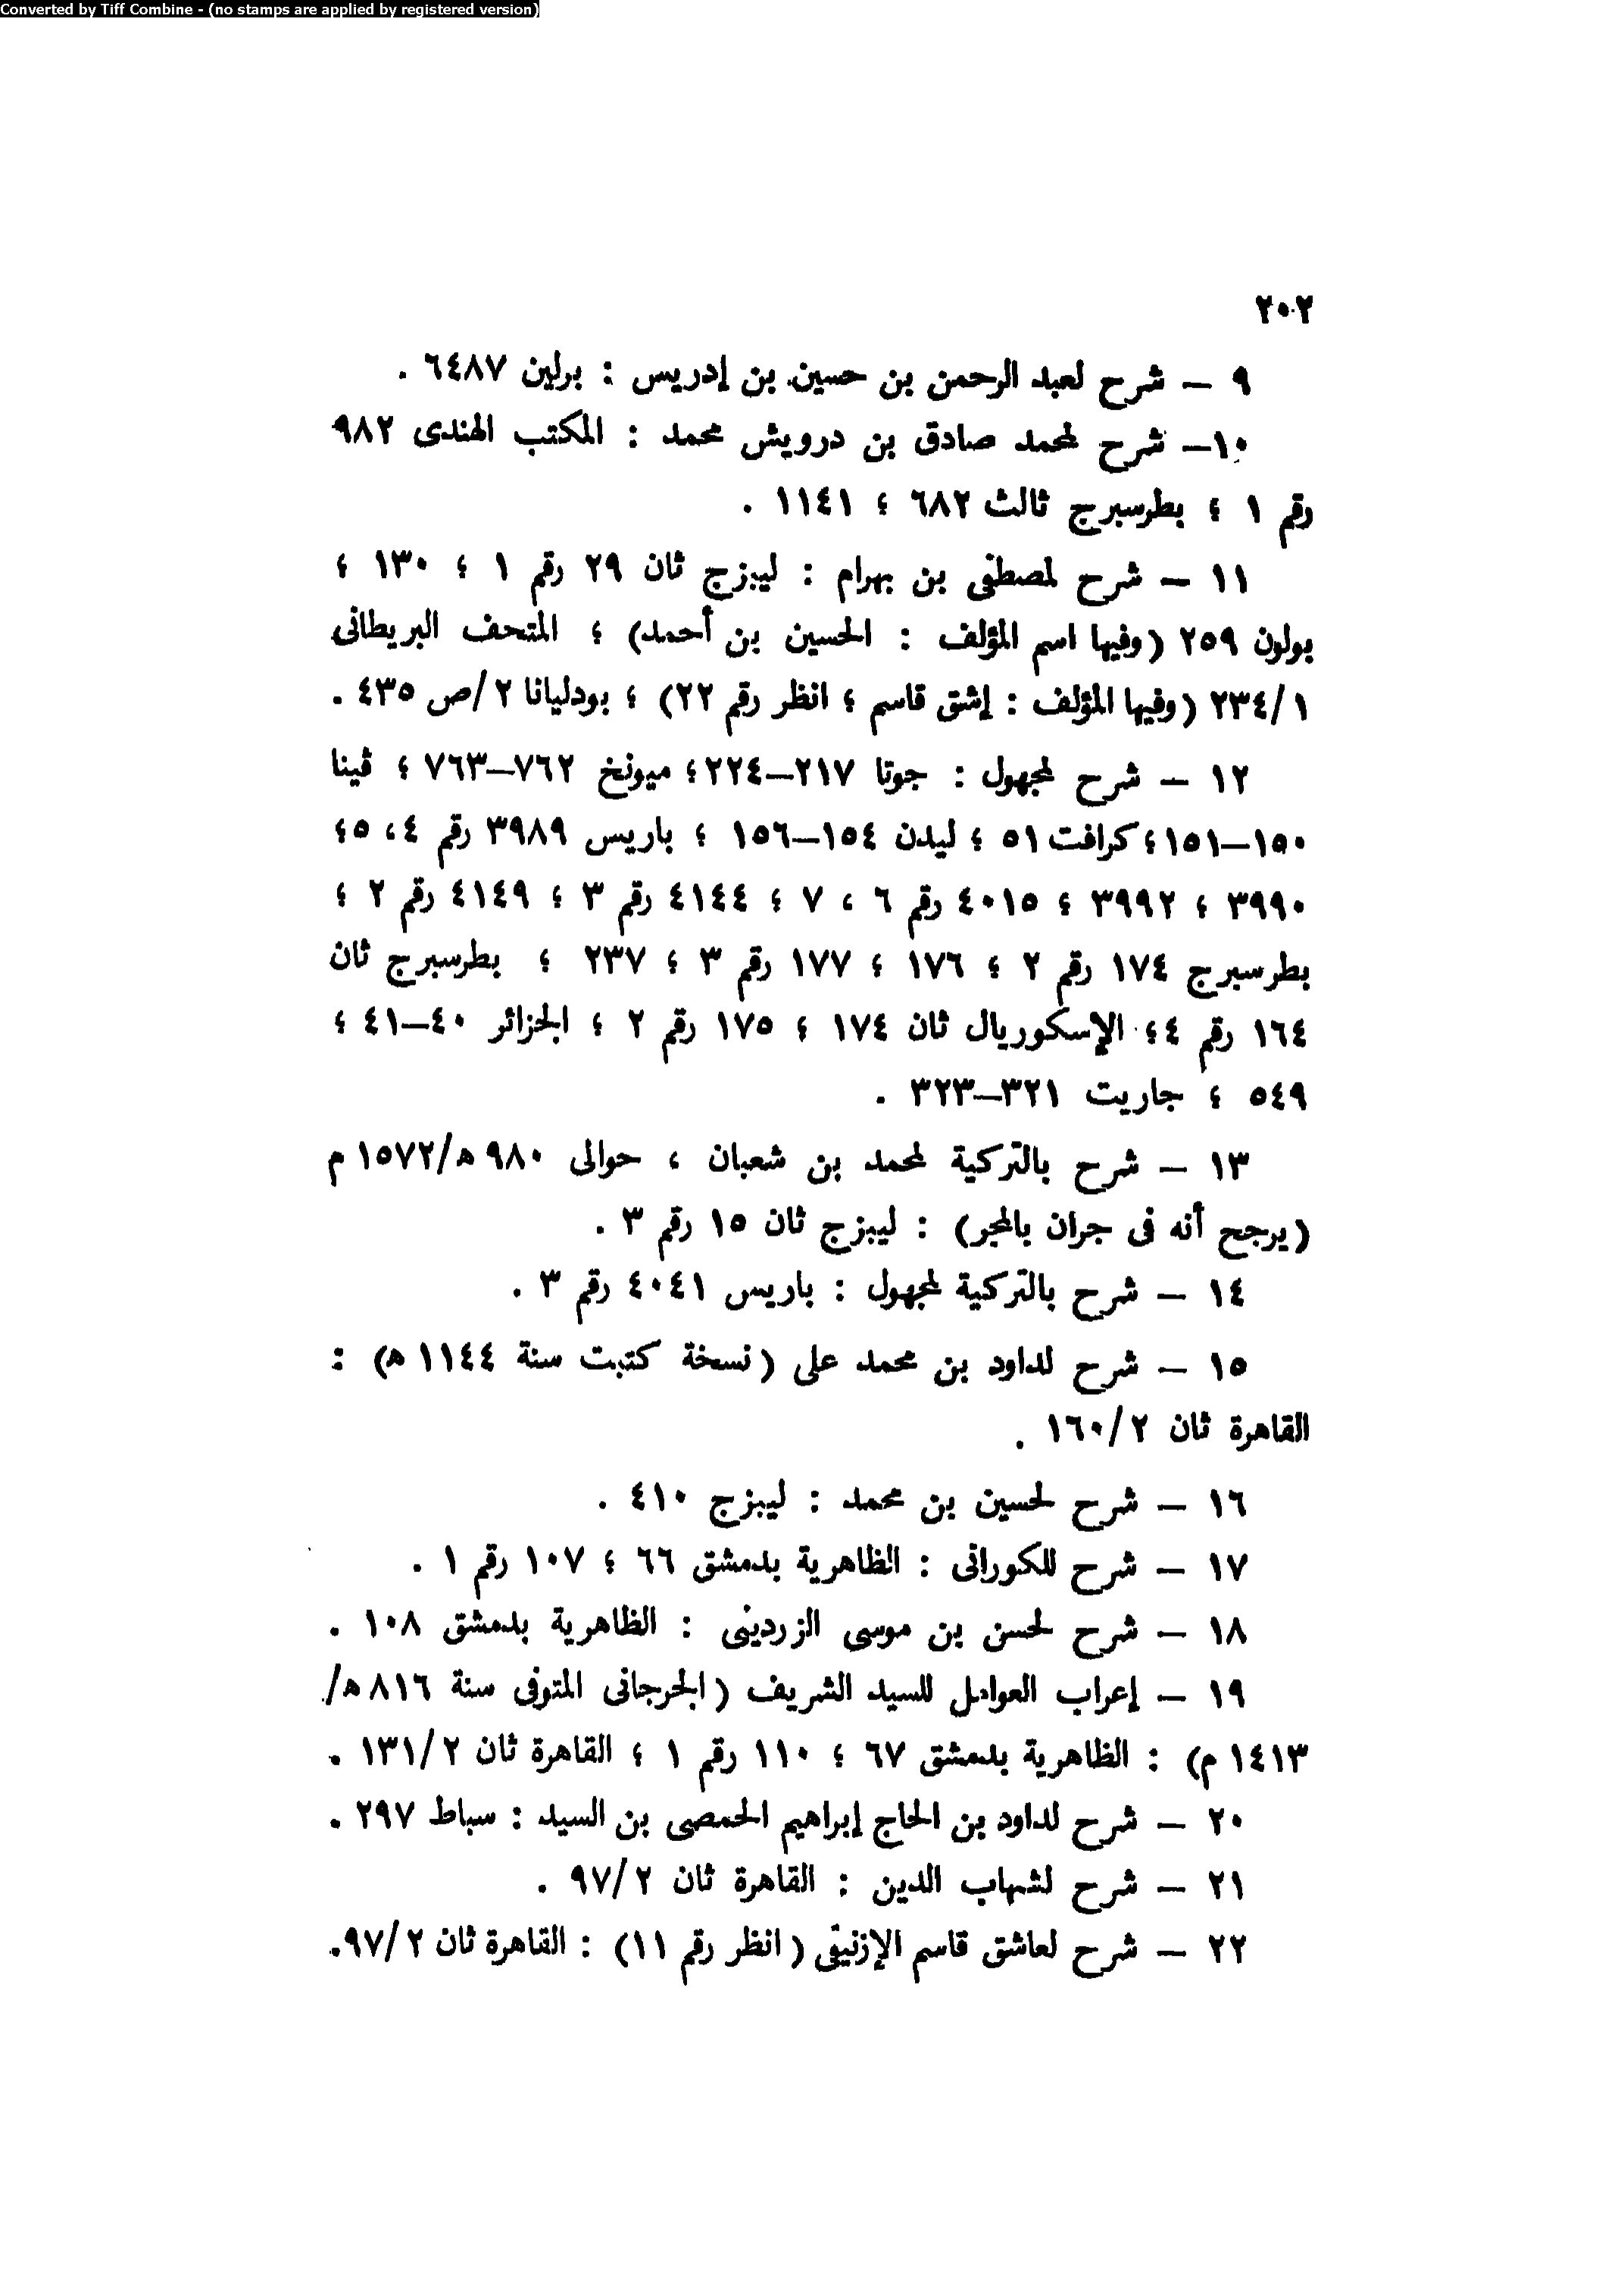 Converted by Tiff Combine - (no stamps are applied by registered version)
٢٠٢
٩ – شرح لعبد الرحمن بن حسين بن إدريس : برلين ٦٤٨٧ .
١٠– شرح لمحمد صادق بن درويش محمد : المكتب الهندى ٩٨٢
رقم ١ ؛ بطرسبرج ثالث ٦٨٢ ؛ ١١٤١ .
١١ – شرح لمصطفى بن بهرام : ليبزج ثان ٢٩ رقم ١ ؛ ١٣٠ ؛
بولون ٢٥٩ (وفيها اسم المؤلف : الحسين بن أحمد) ؛ المتحف البريطانى
٢٣٤/١ (وفيها المؤلف : إشق قاسم ؛ انظر رقم ٢٢) ؛ بودليانا ٢/ص ٤٣٥ .
١٢ – شرح لمجهول : جوتا ٢١٧–٢٢٤؛ ميونخ ٧٦٢–٧٦٣ ؛ ڤينا
١٥٠–١٥١؛ كرافت ٥١ ؛ ليدن ١٥٤–١٥٦ ؛ باريس ٣٩٨٩ رقم ٤، ٥؛
٣٩٩٠ ؛ ٣٩٩٢ ؛ ٤٠١٥ رقم ٦ ، ٧ ؛ ٤١٤٤ رقم ٣ ؛ ٤١٤٩ رقم ٢ ؛
بطرسبرج ١٧٤ رقم ٢ ؛ ١٧٦ ؛ ١٧٧ رقم ٣ ؛ ٢٣٧ ؛ بطرسبرج ثان
١٦٤ رقم ٤؛ الإسكوريال ثان ١٧٤ ؛ ١٧٥ رقم ٢ ؛ الجزائر ٤٠–٤١ ؛
٥٤٩ ؛ جاريت ٣٢١–٣٢٣ .
١٣ – شرح بالتركية لمحمد بن شعبان ، حوالى ٩٨٠ ه/١٥٧٢ م
(يرجح أنه فى جران بالمجر) : ليبزج ثان ١٥ رقم ٣ .
١٤ – شرح بالتركية لمجهول : باريس ٤٠٤١ رقم ٣ .
١٥ – شرح لداود بن محمد على (نسخة كتبت سنة ١١٤٤ ه) :
القاهرة ثان ١٦٠/٢ .
١٦ – شرح لحسين بن محمد : ليبزج ٤١٠ .
١٧ – شرح للكورانى : الظاهرية بدمشق ٦٦ ؛ ١٠٧ رقم ١ .
١٨ – شرح لحسن بن موسى الزردينى : الظاهرية بدمشق ١٠٨ .
١٩ – إعراب العوامل للسيد الشريف (الجرجانى المتوفى سنة ٨١٦ ه/
١٤١٣ م) : الظاهرية بدمشق ٦٧ ؛ ١١٠ رقم ١ ؛ القاهرة ثان ١٣١/٢ .
٢٠ – شرح لداود بن الحاج إبراهيم الحمصى بن السيد : سباط ٢٩٧ .
٢١ – شرح لشهاب الدين : القاهرة ثان ٩٧/٢ .
٢٢ – شرح لعاشق قاسم الإزنيقى (انظر رقم ١١) : القاهرة ثان ٩٧/٢.